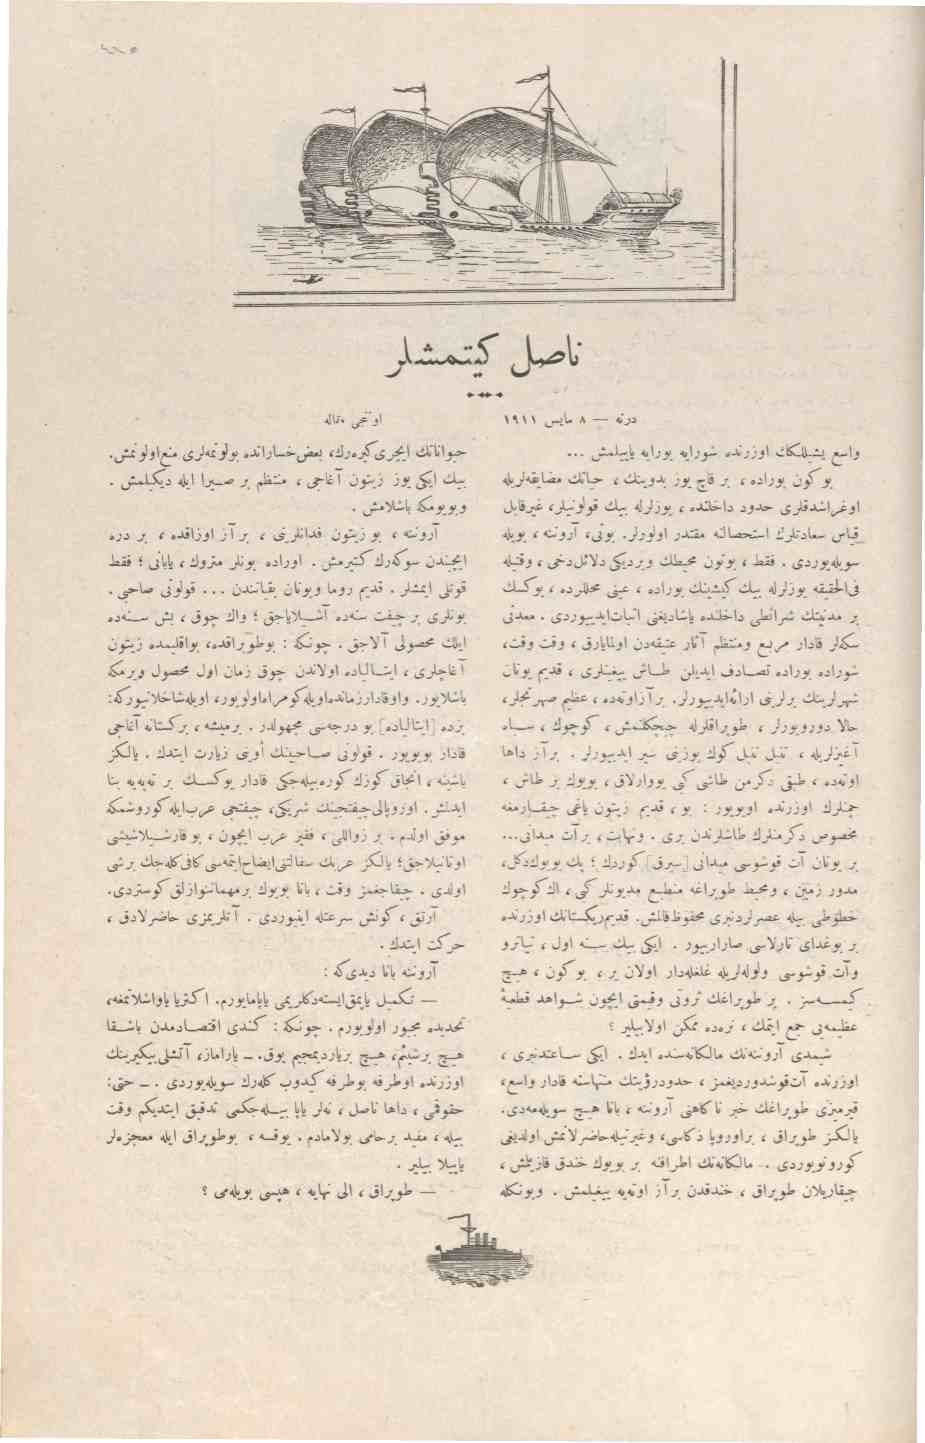 ناصل كيتمشلر
درنه — ٨ مايس ١٩١١
اونجى مقاله
واسع يشيللكلك اوزرنده شورايه بورايه ياپيلمش ...
بو كون بوراده ، بر قاچ يوز بدوينك ، حياتك مضايقه‌لريله
اوغراشدقلرى حدود داخلنده ، يوزلرله بيك قولونيلر، غيرقابل
قياس سعادتلرك استحصالنه مقتدر اولورلر. بونى، آرونته ، بويله
سويله‌يوردى . فقط ، بوتون محيطك ويرديكى دلائل‌دخى ، وقتيله
فى‌الحقيقه يوزلرله بيك كيشينك بوراده ، عينى محللرده ، يوكسك
بر مدنيتك شرائطى داخلنده ياشاديغنى اثبات‌ايدييوردى . معدنى
سكه‌لر قادار مربع ومنتظم آثار عتيقه‌دن اولمايارق ، وقت وقت،
شوراده بوراده تصادف ايديلن طاش ييغينلرى ، قديم يونان
شهرلرينك يرلرينى ارائه‌ايدييورلر. بر آز اوته‌ده ، عظيم صهرنجلر،
حالا دورويورلر ، طوپراقلرله چيچكلنمش ، كوچوك ، سياه
آغيزلريله ، تنبل تنبل كوك يوزينى سير ايدييورلر . بر آز داها
اوته‌ده ، طبقى دكرمن طاشى كبى يووارلاق ، بويوك بر طاش ،
چمنلرك اوزرنده اويويور : بو ، قديم زيتون ياغى چيقارمغه
مخصوص دكرمنلرك طاشلرندن برى . ونهايت ، بر آت ميدانى...
بر يونان آت قوشوسى ميدانى [سيرق] كوردك ؛ پك بويوك‌دكل،
مدور زمين ، ومحيط طوپراغه منطبع مديونلر كبى ، اك كوچوك
خطوطى بيله عصرلردنبرى محفوظ قالمش. قديم ريكستانك اوزرنده
بر بوغداى تارلاسى صارارييور . ايكى بيك سنه اول ، تياترو
وآت قوشوسى ولوله‌لريله غلغله‌دار اولان ير ، بو كون ، هيچ
كيمسه‌سز . بر طوپراغك ثروتى وقيمتى ايچون شواهد قطعيۀ
عظيمه‌يى جمع ايتمك ، نره‌ده ممكن اولابيلير ؟
شيمدى آرونته‌نك مالكانه‌سنده ايدك . ايكى ساعتدنبرى ،
اوزرنده آت‌قوشدورديغمز ، حدودرؤيتك منتهاسنه قادار واسع،
قيرميزى طوپراغك خبر ناكاهنى آرونته ، بانا هيچ سويله‌مه‌دى.
يالكز طوپراق ، بر اوروپا ذكاسى، وغيرتيله حاضرلانمش اولديغى
كورونويوردى . مالكانه‌نك اطرافنه بر بويوك خندق قازيلمش ،
چيقاريلان طوپراق ، خندقدن بر آز اوته‌يه ييغيلمش . وبونكله
حيواناتك ايچرى كيره‌رك، بعض‌خساراتده بولونمه‌لرى منع‌اولونمش.
بيك ايكى يوز زيتون آغاجى ، منتظم بر صيرا ايله ديكيلمش .
وبويومكه باشلامش .
آرونته ، بو زيتون فدانلرينى ، بر آز اوزاقده ، بر دره
ايچندن سوكه‌رك كتيرمش . اوراده بونلر متروك ، يابانى ؛ فقط
قوتلى ايمشلر . قديم روما ويونان بقياتندن ... قولونى صاحبى .
بونلرى بر چفت سنه‌ده آشيلاياجق ؛ واك چوق ، بش سنه‌ده
ايلك محصولى آلاجق . چونكه : بوطوپراقده، بواقليمده زيتون
آغاچلرى ، ايتالياده اولاندن چوق زمان اول محصول ويرمكه
باشلايور. واوقادار زمانده‌اويله‌كومراه‌اولويور، اويله‌شاخلانيوركه:
بزده [ايتالياده] بو درجه‌سى مجهولدر . برميشه ، بركستانه آغاجى
قادار بويويور . قولونى صاحبنك أوينى زيارت ايتدك . يالكز
باشينه ، آنجاق كوزك كوره‌بيله‌جكى قادار يوكسك بر تپه‌يه بنا
ايدلمش . اوروپالى‌چيفتچينك شريكى، چيفتچى عرب‌ايله كوروشمكه
موفق اولدم . بر زواللى ، فقير عرب ايچون ، بو قارشيلاشيشى
اوتانيلاجق؛ يالكز عربك سفالتنى‌ايضاح‌ايتمه‌سى كافى‌كله‌جك برشى
اولدى . چيقاجغمز وقت ، بانا بويوك برمهمانوازلق كوستردى.
آرتق ، كونش سرعتله اينيوردى . آتلريمزى حاضرلادق ،
حركت ايتدك .
آرونته بانا ديدى كه :
— تكميل ياپمق‌ايسته‌دكلريمى ياپامايورم. اكثريا ياواشلاتمغه،
تحديده مجبور اولويورم . چونكه : كندى اقتصادمدن باشقا
هيچ برشيئم، هيچ بريارديمجيم يوق. — ياراماز، آتشلى‌بيكيرينك
اوزرنده اوطرفه بوطرفه كيدوب كله‌رك سويله‌يوردى . — حتى:
حقوقمى ، داها ناصل ، نه‌لر ياپا بيله‌جكمى تدقيق ايتديكم وقت
بيله ، مفيد برحامى بولامادم . يوقسه ، بوطوپراق ايله معجزه‌لر
ياپيلا بيلير .
— طوپراق ، الى نهايه ، هپسى بويله‌مى ؟